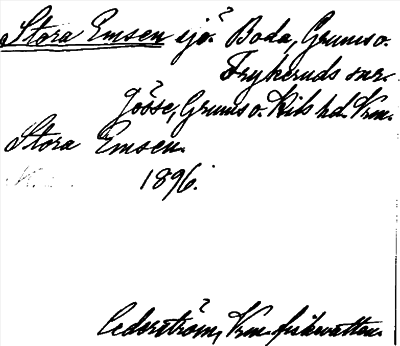 Stora Emsen sjö. Boda, Grums o.
Frykeruds snr.
Gösse, Grums o. Kils hd. Vrm.
Stora Emsen.
1896.
Cederström, Vrm. fiskevatten.